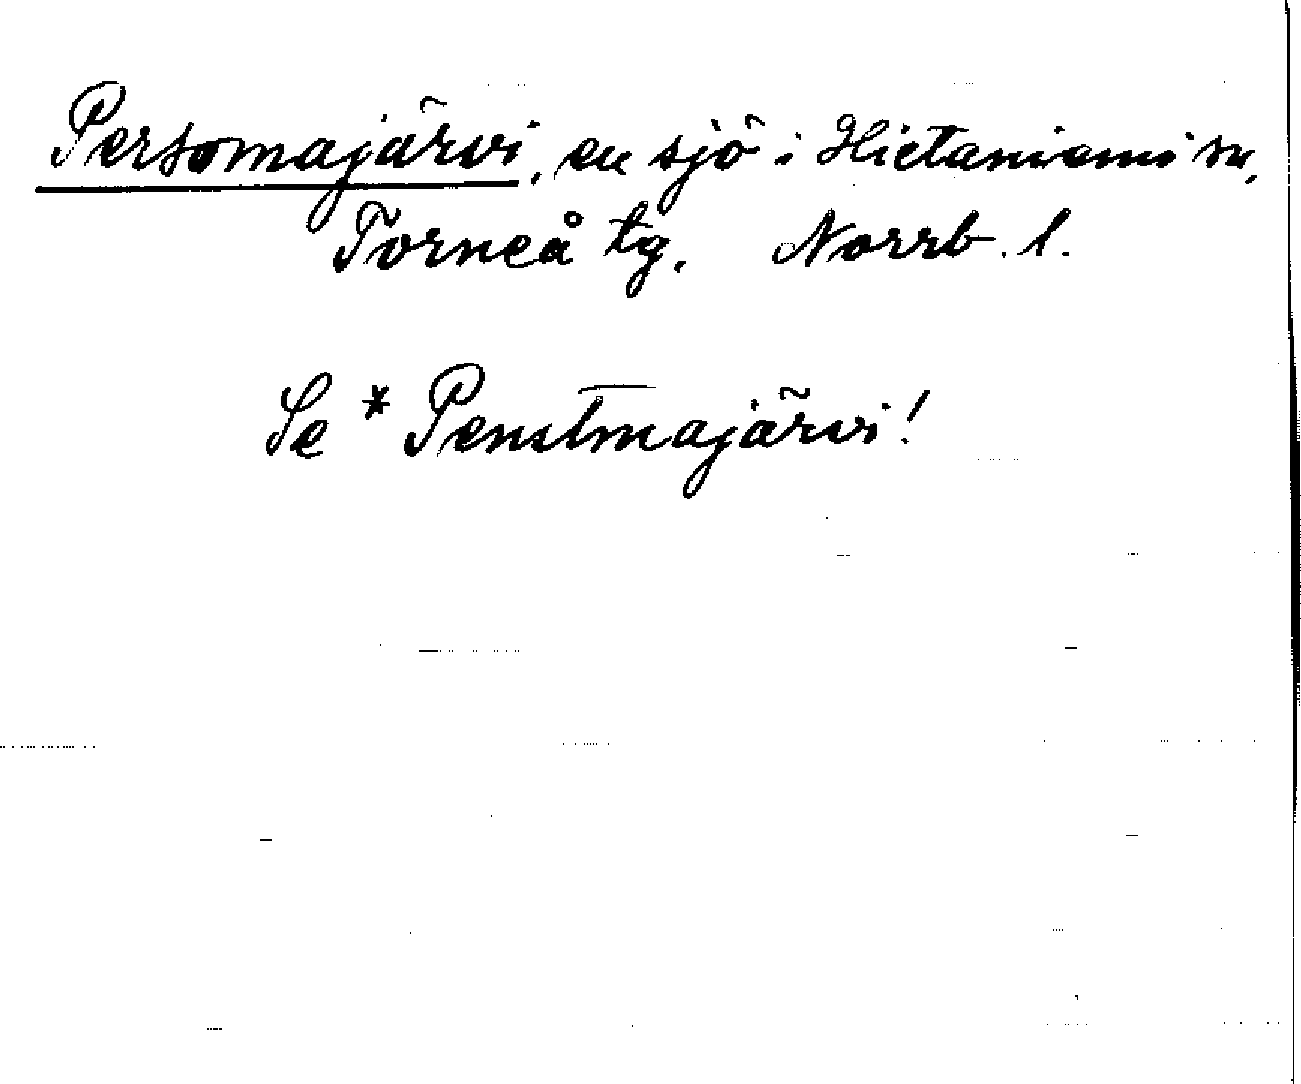 Persomajärvi, en sjö i Hietaniemi sn,
Torneå tg. Norrb. l.
Se * Penstmajärvi!